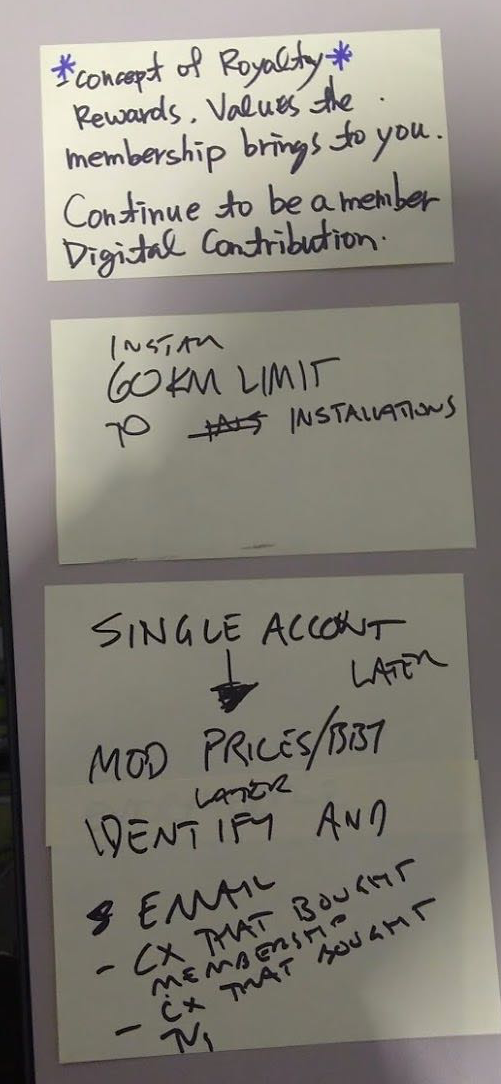 *concept of Royalty*
Rewards. Values the
membership brings to you.
Continue to be a member
Digital Contribution.
INSTALL
60KM LIMIT
TO INSTALLATIONS
SINGLE ACCONT
LATER
MOD PRICES/BB1
LATER
IDENTIFY AND
EMAIL
- CX THAT BOUGHT
MEMBERSHIP
- CX THAT BOUGHT